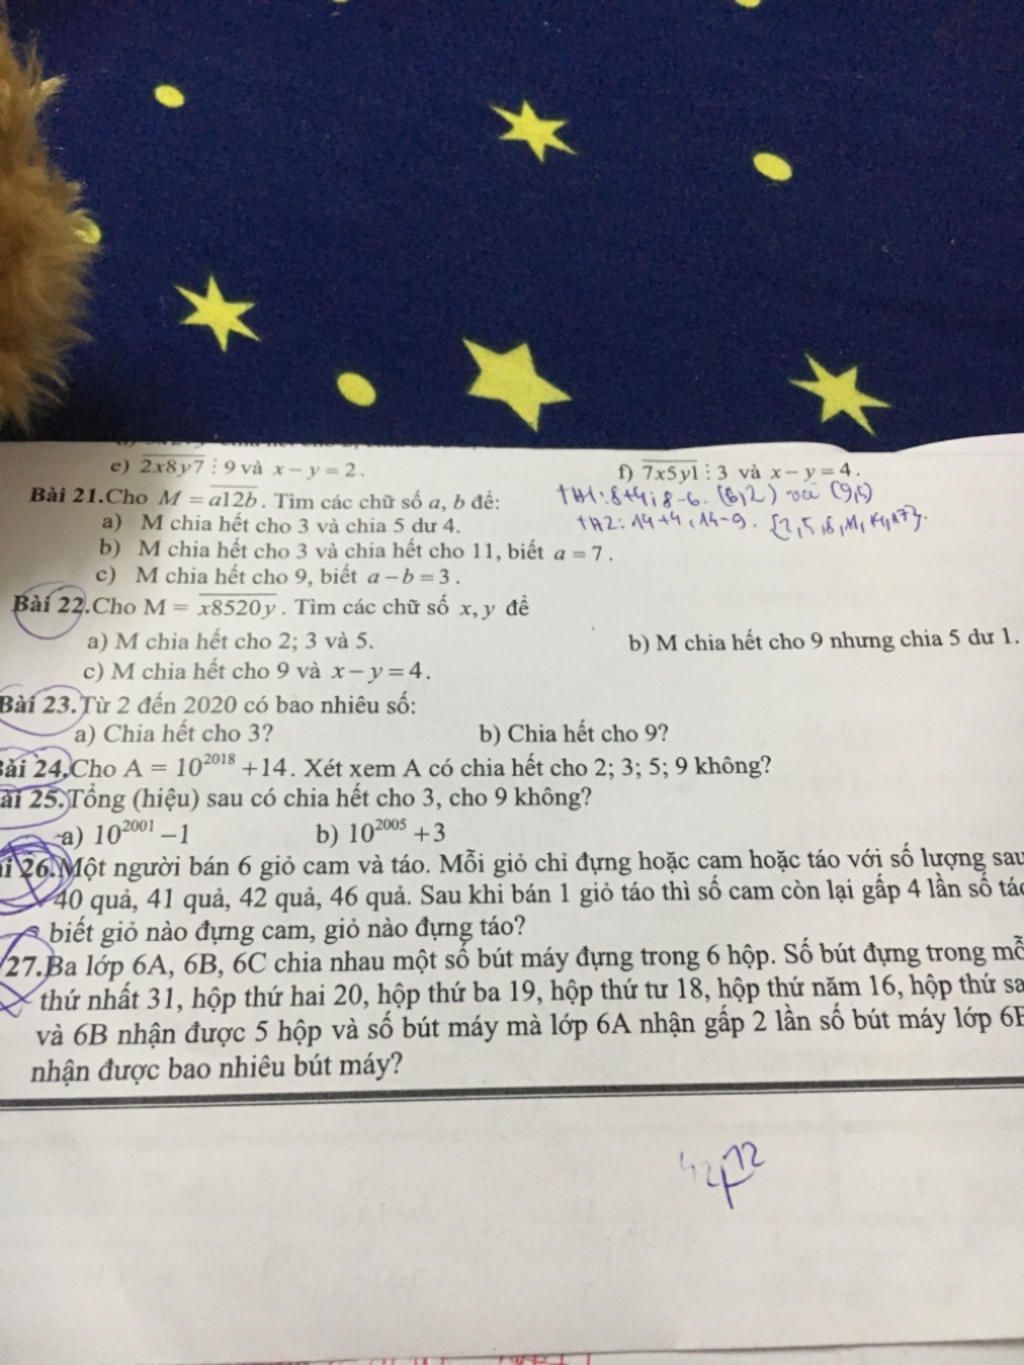 e) 2x8y7 ⋮ 9 và x − y = 2.
f) 7x5y1 ⋮ 3 và x − y = 4.
Bài 21.Cho M = a12b. Tìm các chữ số a, b để:
a) M chia hết cho 3 và chia 5 dư 4.
b) M chia hết cho 3 và chia hết cho 11, biết a = 7.
c) M chia hết cho 9, biết a − b = 3.
Bài 22.Cho M = x8520y. Tìm các chữ số x, y để
a) M chia hết cho 2; 3 và 5.
b) M chia hết cho 9 nhưng chia 5 dư 1.
c) M chia hết cho 9 và x − y = 4.
Bài 23.Từ 2 đến 2020 có bao nhiêu số:
a) Chia hết cho 3?
b) Chia hết cho 9?
Bài 24.Cho A = 10²⁰¹⁸ + 14. Xét xem A có chia hết cho 2; 3; 5; 9 không?
ài 25.Tổng (hiệu) sau có chia hết cho 3, cho 9 không?
a) 10²⁰⁰¹ − 1
b) 10²⁰⁰⁵ + 3
i 26.Một người bán 6 giỏ cam và táo. Mỗi giỏ chỉ đựng hoặc cam hoặc táo với số lượng sau
40 quả, 41 quả, 42 quả, 46 quả. Sau khi bán 1 giỏ táo thì số cam còn lại gấp 4 lần số táo
biết giỏ nào đựng cam, giỏ nào đựng táo?
27.Ba lớp 6A, 6B, 6C chia nhau một số bút máy đựng trong 6 hộp. Số bút đựng trong mỗ
thứ nhất 31, hộp thứ hai 20, hộp thứ ba 19, hộp thứ tư 18, hộp thứ năm 16, hộp thứ sá
và 6B nhận được 5 hộp và số bút máy mà lớp 6A nhận gấp 2 lần số bút máy lớp 6B
nhận được bao nhiêu bút máy?